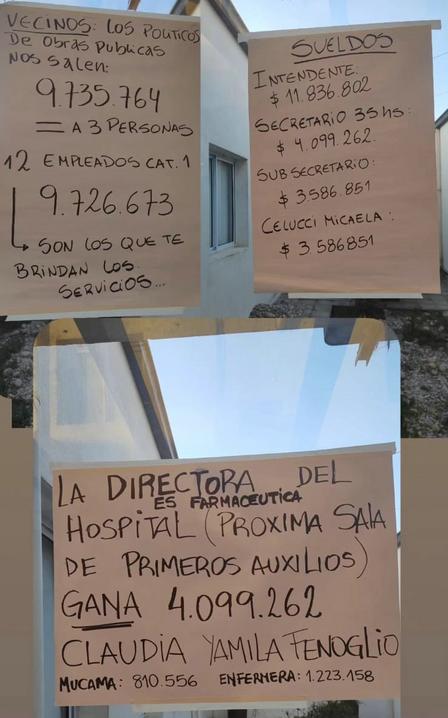 VECINOS: LOS POLITICOS
De OBRAS PUBLICAS
NOS SALEN:
9.735.764
= A 3 PERSONAS
12 EMPLEADOS CAT. 1
9.726.673
→ SON LOS QUE TE
BRINDAN LOS
SERVICIOS...
SUELDOS
INTENDENTE:
$ 11.836.802
SECRETARIO 35 hs:
$ 4.099.262.
SUBSECRETARIO:
$ 3.586.851
CELUCCI MICAELA:
$ 3 586851
LA DIRECTORA DEL
ES FARMACEUTICA
HOSPITAL (PROXIMA SALA
DE PRIMEROS AUXILIOS)
GANA 4.099.262
CLAUDIA YAMILA FENOGLIO
MUCAMA: 810.556 ENFERMERA: 1.223.158